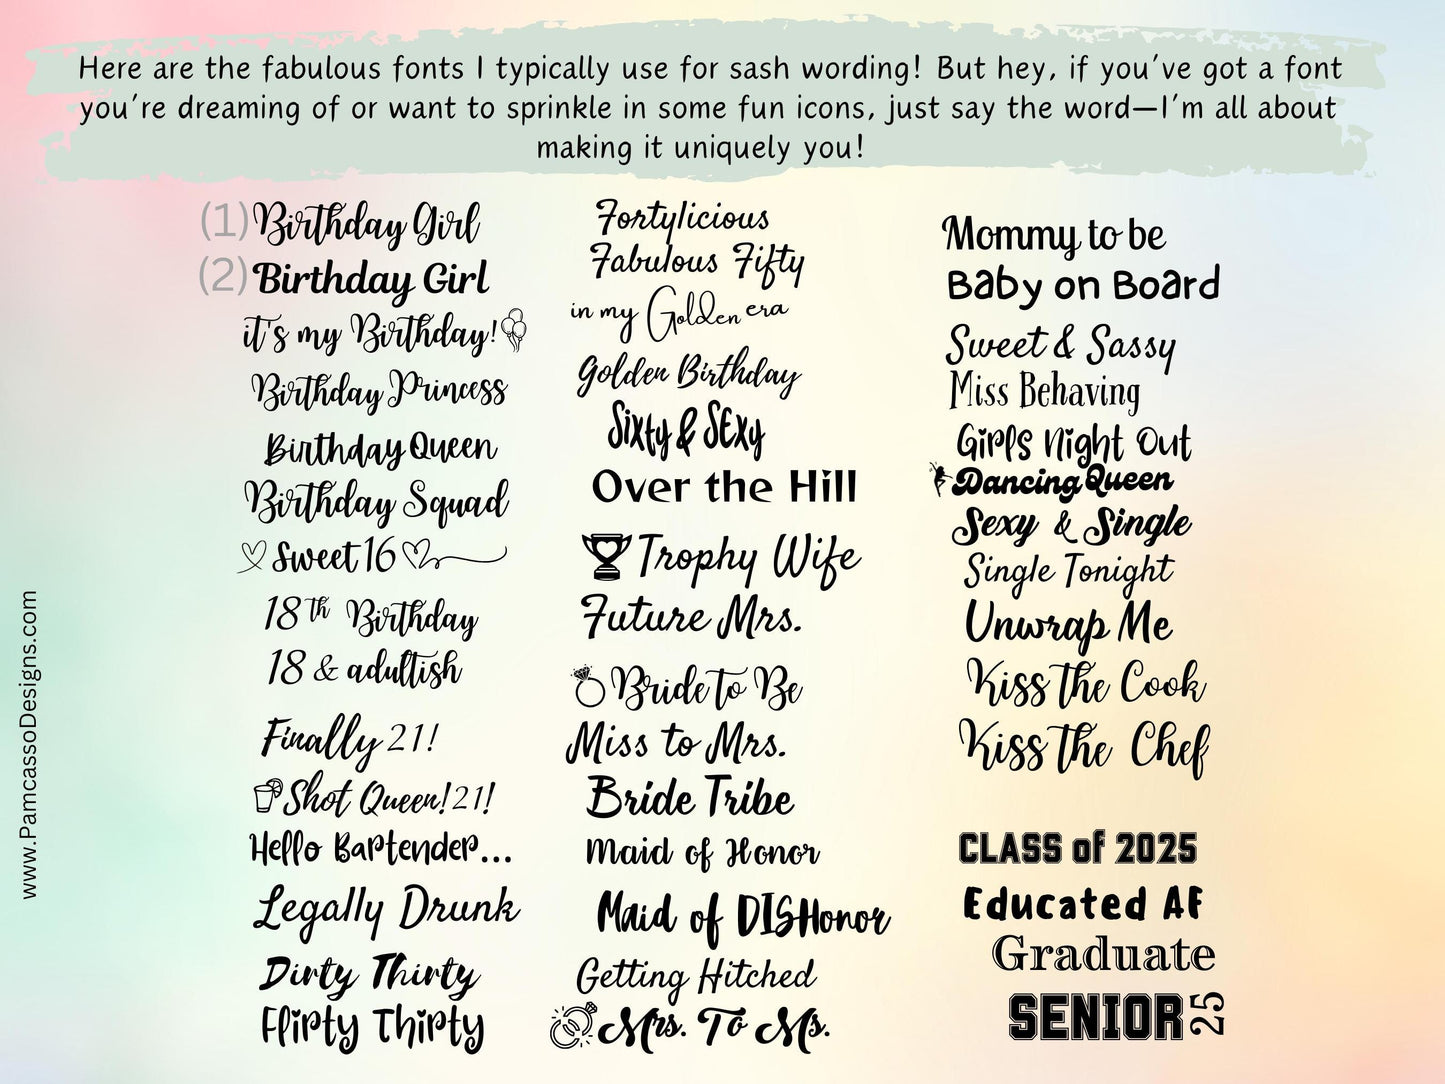 Here are the fabulous fonts I typically use for sash wording! But hey, if you've got a font
you're dreaming of or want to sprinkle in some fun icons, just say the word—I'm all about
making it uniquely you!
(1) Birthday Girl
(2) Birthday Girl
it's my Birthday!
Birthday Princess
Birthday Queen
Birthday Squad
Sweet 16
18th Birthday
18 & adultish
Finally 21!
Shot Queen! 21!
Hello Bartender...
Legally Drunk
Dirty Thirty
Flirty Thirty
Fortylicious
Fabulous Fifty
in my Golden era
Golden Birthday
Sixty & SExy
Over the Hill
Trophy Wife
Future Mrs.
Bride To Be
Miss to Mrs.
Bride Tribe
Maid of Honor
Maid of DISHonor
Getting Hitched
Mrs. To Ms.
Mommy to be
Baby on Board
Sweet & Sassy
Miss Behaving
Girls Night Out
Dancing Queen
Sexy & Single
Single Tonight
Unwrap Me
Kiss The Cook
Kiss The Chef
CLASS of 2025
Educated AF
Graduate
SENIOR 25
www.PamcassoDesigns.com